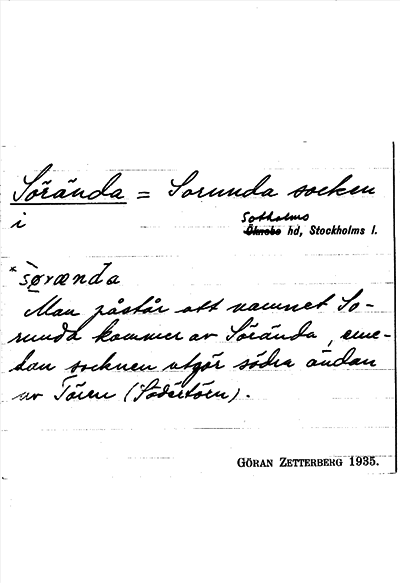 Sörända = Sorunda socken
i
Sotholms
Öknebo hd, Stockholms l.
*sørænda
Man påstår att namnet So-
runda kommer av Sörända, eme-
dan socknen utgör södra ändan
av Tören (Södertörn).
GÖRAN ZETTERBERG 1935.